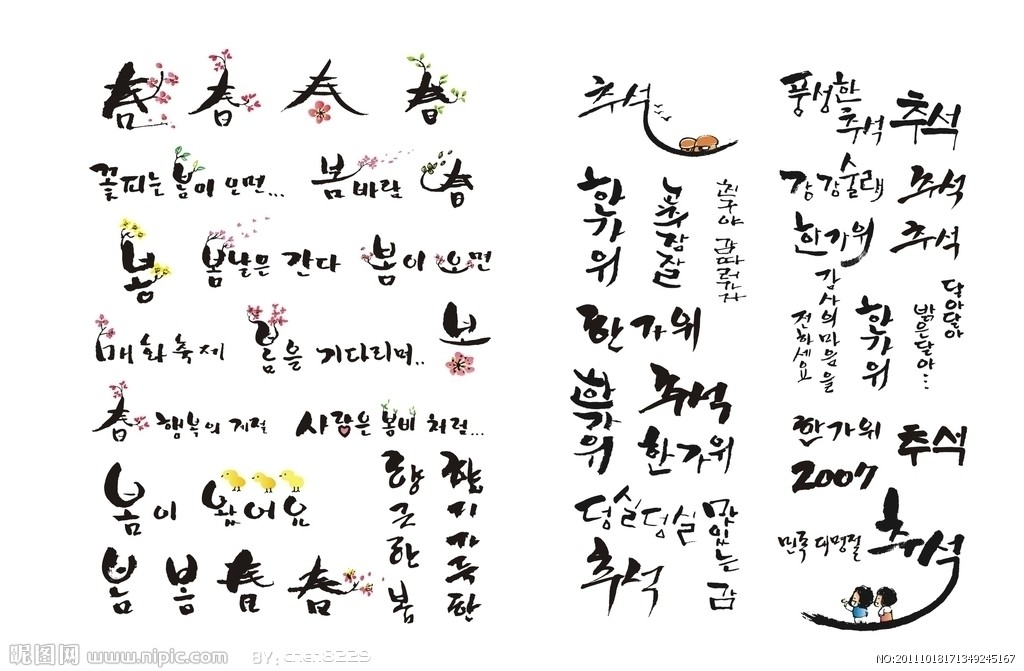 春 春 春 春
꽃피는 봄이 오면... 봄바람 春
봄 봄날은 간다 봄이 오면
매화축제 봄을 기다리며.. 봄
春 행복의 계절 사랑은 봄비처럼...
봄이 왔어요
봄 봄 春 春
향긋한 봄
향기가득한
추석
한가위
친구야 놀러가자
한가위
한가위
추석
한가위
덩실덩실
추석
맛있는 감
풍성한
추석
추석
강강술래 추석
한가위 추석
감사의 마음을
전하세요
한가위
달아달아
밝은달아...
한가위
2007
추석
민족대명절
추석
昵图网 www.nipic.com BY:chen8229
NO:20111018171349245167